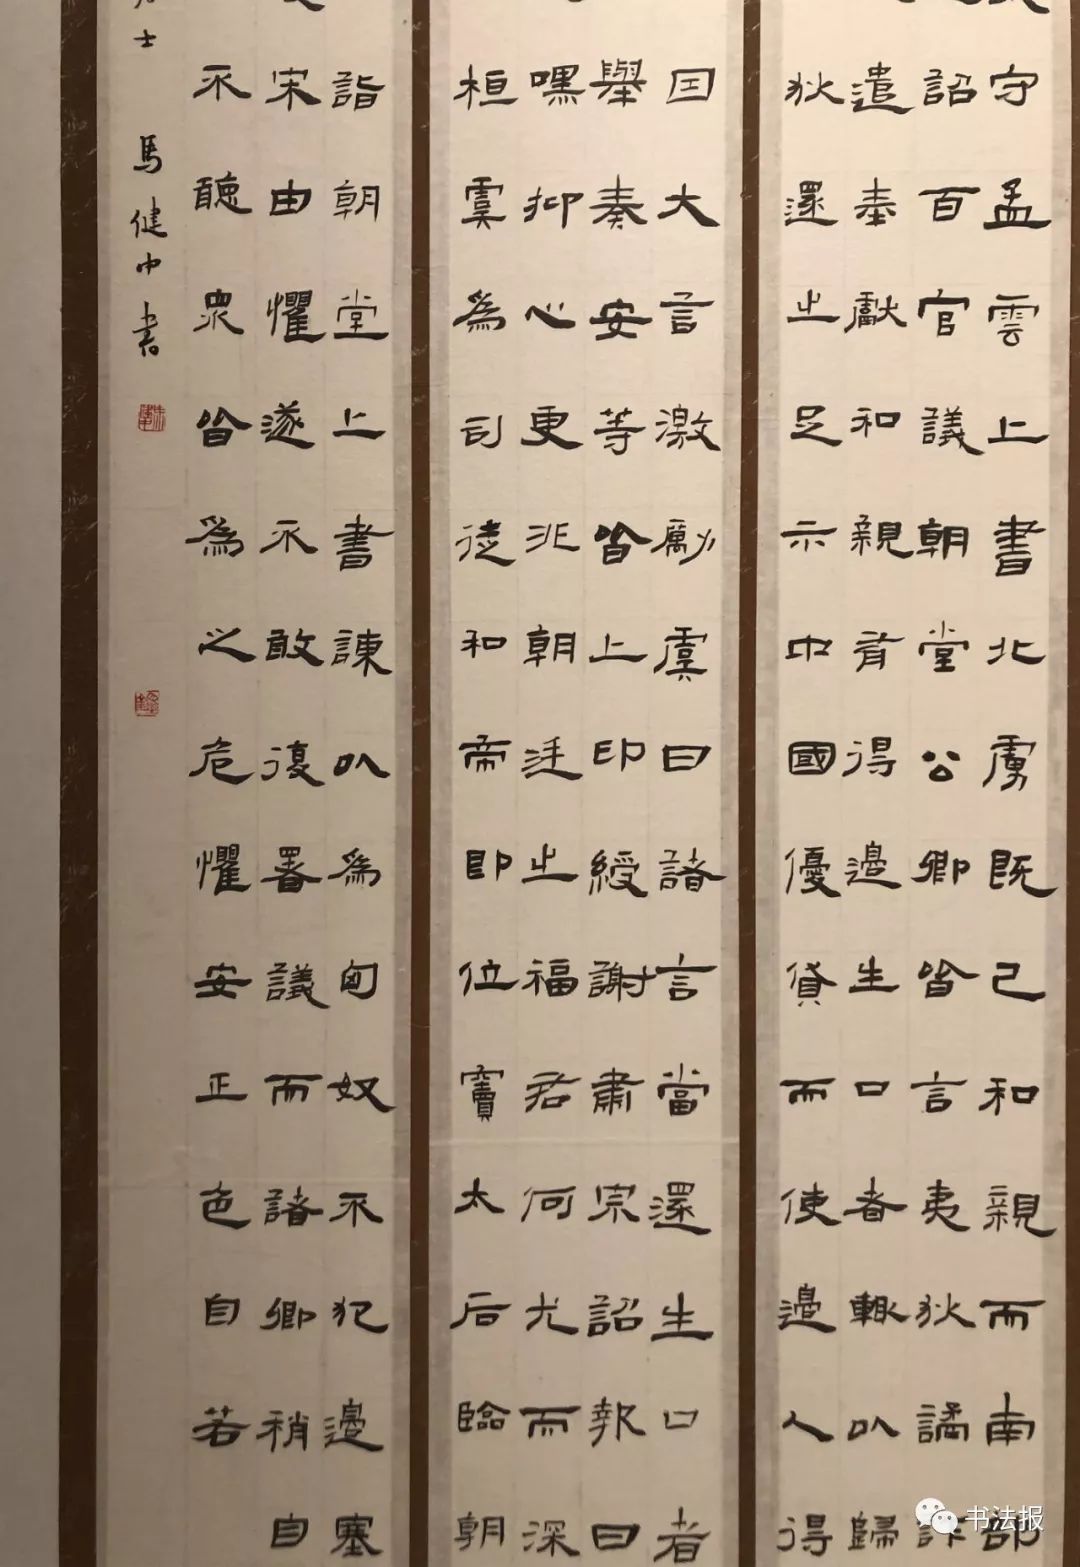 守孟雲上書北虜既已和親而南部
詔百官議朝堂公卿皆言夷狄譎詐
遣奉獻和親有得邊生口者輒以歸
狄還之足示中國優貸而使邊人得
因大言激勵虞曰諸言當還生口者
舉奏安等皆上印綬謝肅宗詔報曰
嘿抑心更非朝廷之福君何尤而深
桓虞為司徒和帝即位竇太后臨朝
詣朝堂上書諫以為匈奴不犯邊塞
宋由懼遂不敢復署議而諸卿稍自
不聽眾皆為之危懼安正色自若
士 馬健中書
书法报